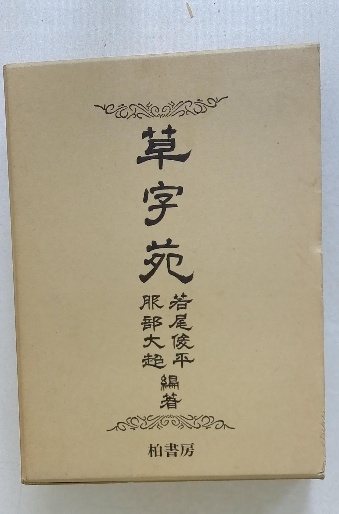 草字苑
若尾俊平
服部大超
編著
柏書房